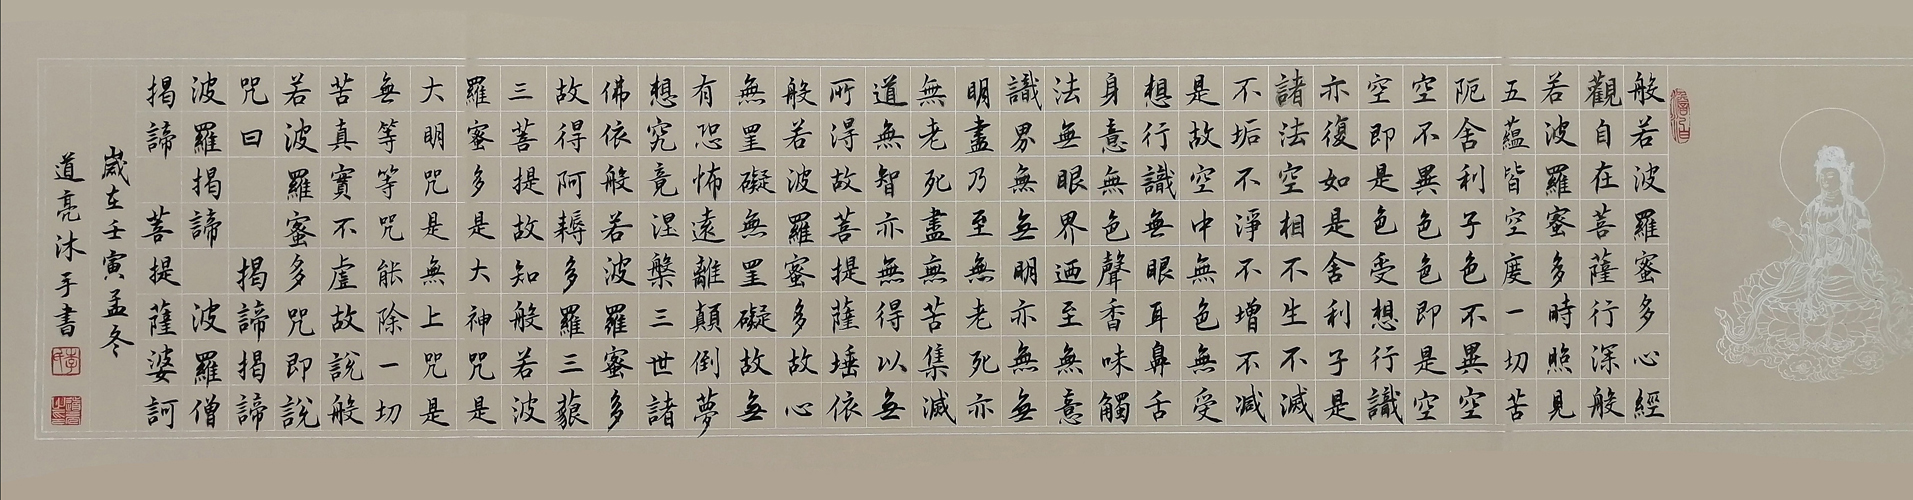 般若波羅蜜多心經
觀自在菩薩行深般
若波羅蜜多時照見
五蘊皆空度一切苦
阨舍利子色不異空
空不異色色即是空
空即是色受想行識
亦復如是舍利子是
諸法空相不生不滅
不垢不淨不增不減
是故空中無色無受
想行識無眼耳鼻舌
身意無色聲香味觸
法無眼界迺至無意
識界無無明亦無無
明盡乃至無老死亦
無老死盡無苦集滅
道無智亦無得以無
所得故菩提薩埵依
般若波羅蜜多故心
無罣礙無罣礙故無
有恐怖遠離顛倒夢
想究竟涅槃三世諸
佛依般若波羅蜜多
故得阿耨多羅三藐
三菩提故知般若波
羅蜜多是大神咒是
大明咒是無上咒是
無等等咒能除一切
苦真實不虛故說般
若波羅蜜多咒即說
咒曰 揭諦揭諦
波羅揭諦 波羅僧
揭諦 菩提薩婆訶
歲在壬寅孟冬
道亮沐手書